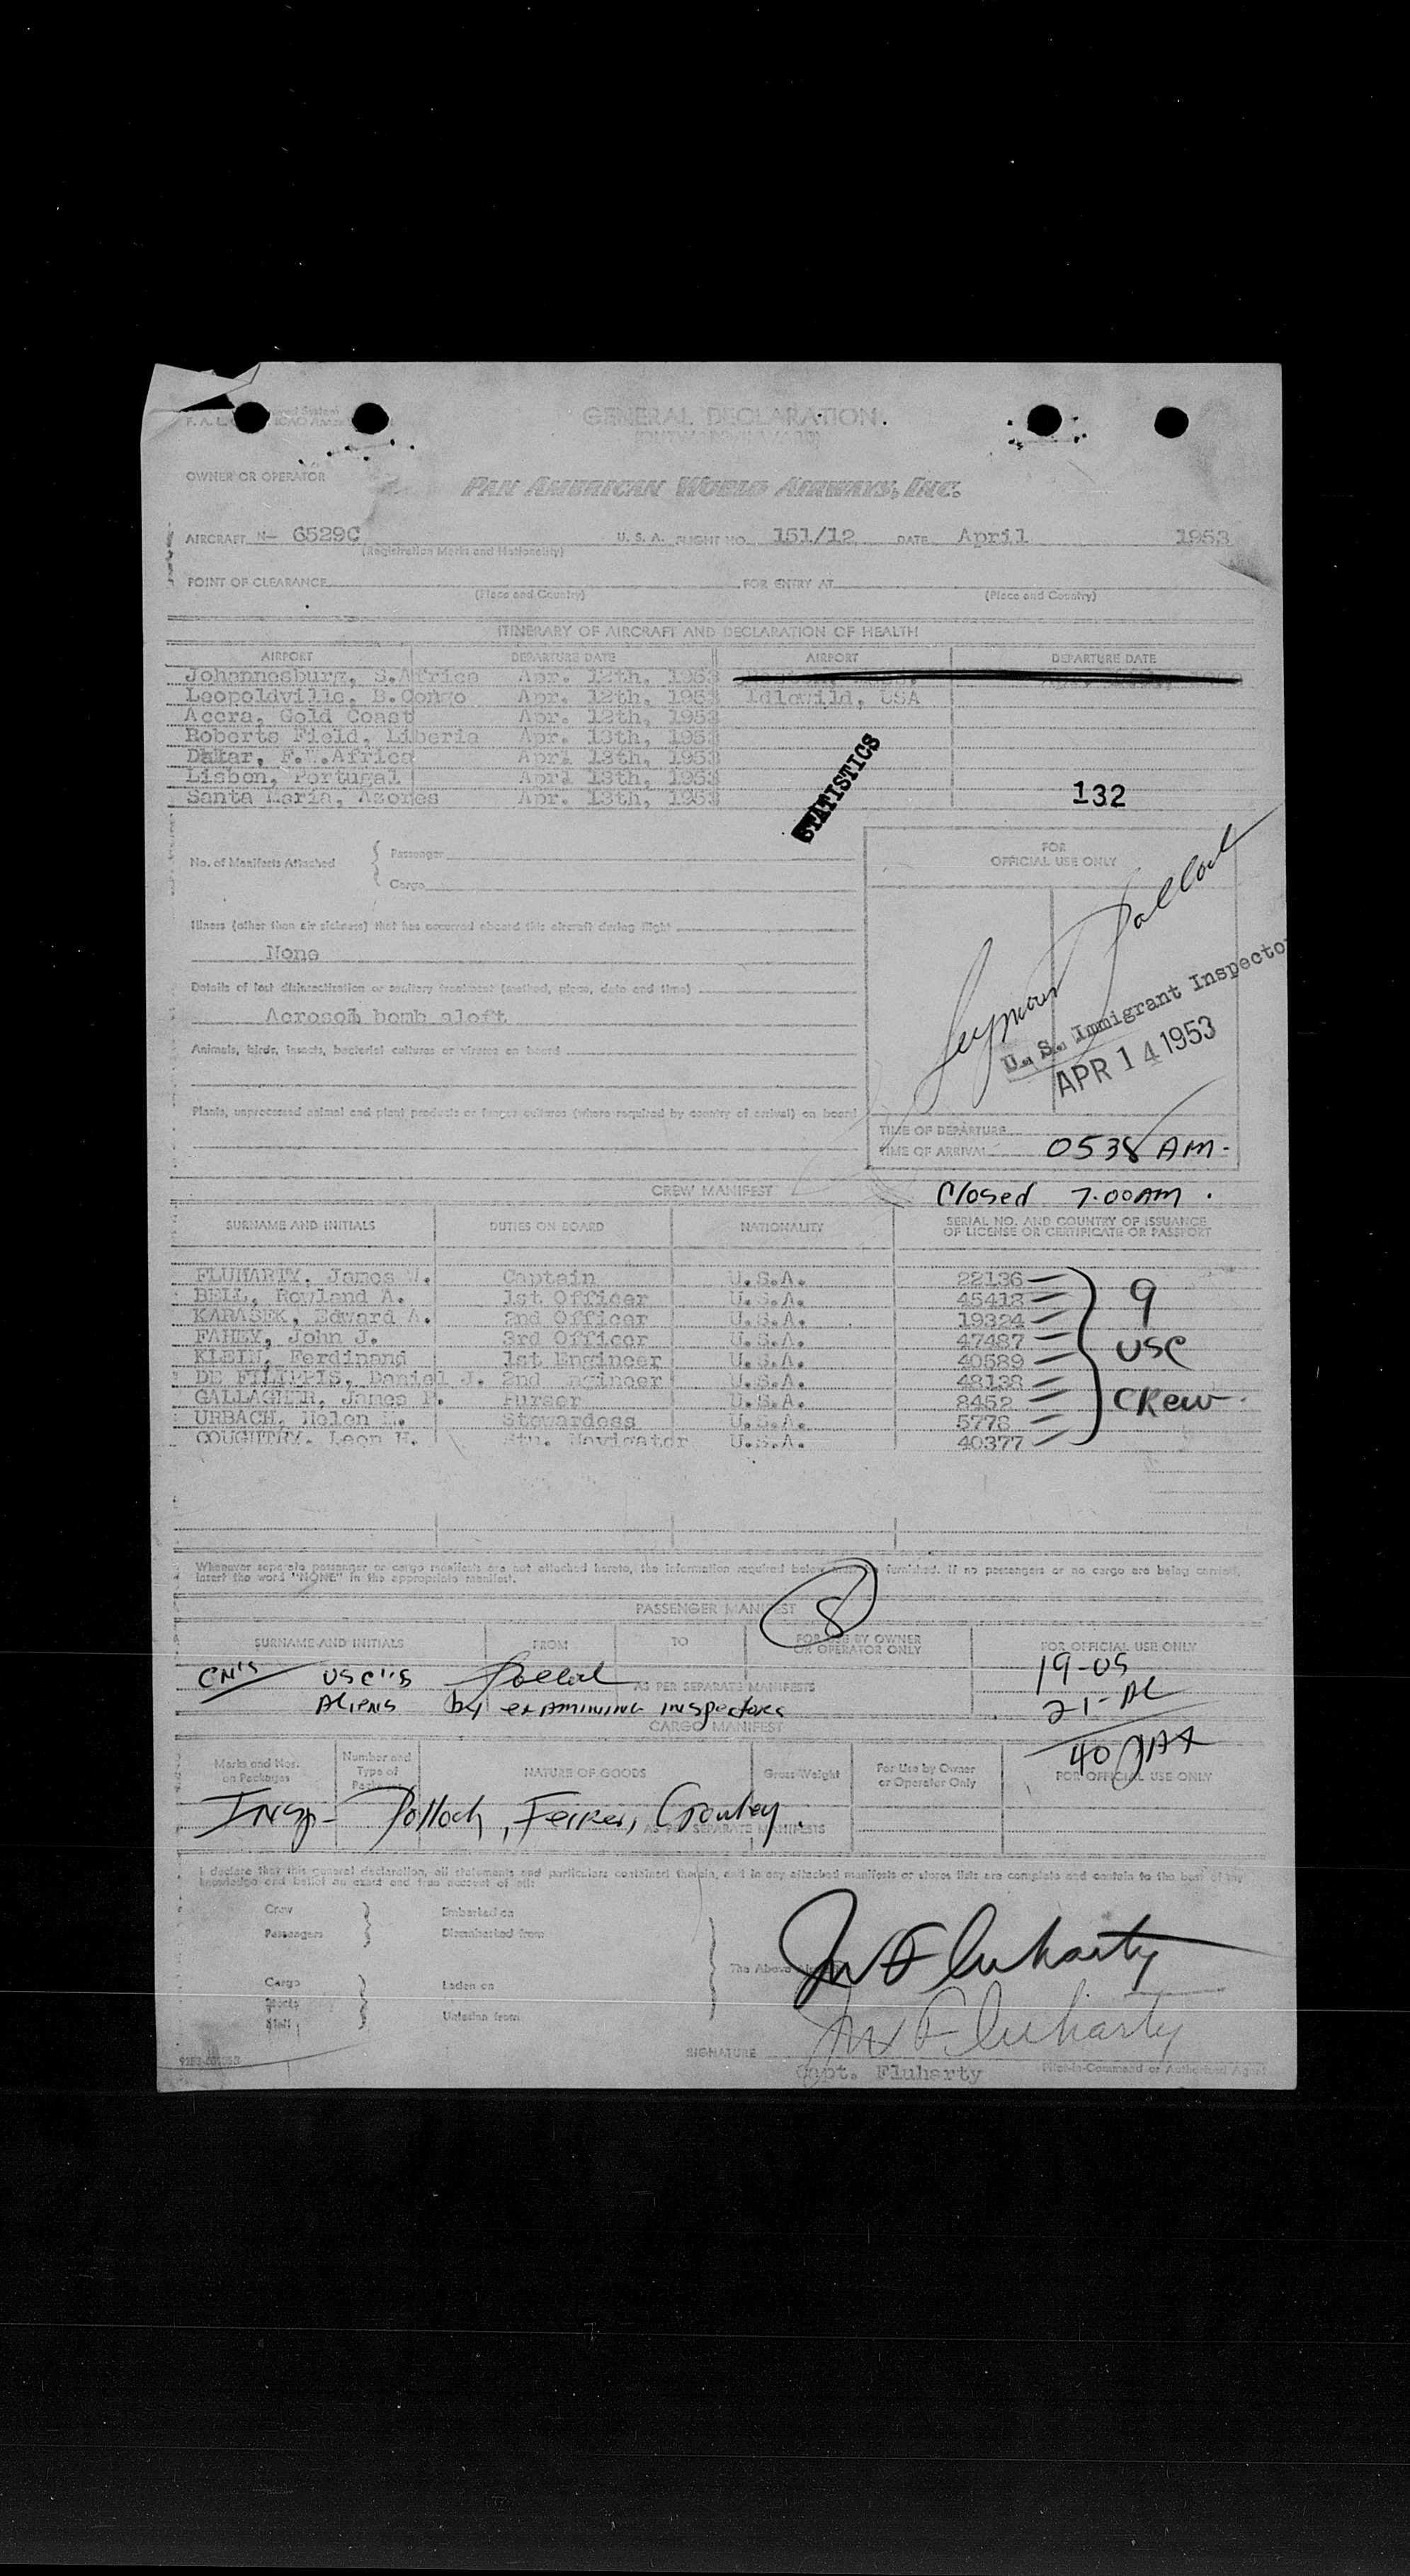 GENERAL DECLARATION
OWNER OR OPERATOR
PAN AMERICAN WORLD AIRWAYS, INC.
AIRCRAFT N- 6529C U. S. A. FLIGHT NO. 151/12 DATE April 1953
(Registration Marks and Nationality)
POINT OF CLEARANCE FOR ENTRY AT
(Place and Country) (Place and Country)
ITINERARY OF AIRCRAFT AND DECLARATION OF HEALTH
AIRPORT DEPARTURE DATE AIRPORT DEPARTURE DATE
Johannesburg, S.Africa Apr. 12th, 1953
Leopoldville, B.Congo Apr. 12th, 1953 Idlewild, USA
Accra, Gold Coast Apr. 12th, 1953
Roberts Field, Liberia Apr. 13th, 1953
Dakar, F.W.Africa Apr. 13th, 1953
Lisbon, Portugal Apr. 13th, 1953
Santa Maria, Azores Apr. 13th, 1953
STATISTICS
132
No. of Manifests Attached
Passenger
Cargo
FOR
OFFICIAL USE ONLY
Illness (other than air sickness) that has occurred aboard this aircraft during flight
None
Details of last disinsectization or sanitary treatment (method, place, date and time)
bomb aloft
Animals, birds, insects, bacterial cultures or viruses on board
Plants, unprocessed animal and plant products or fungus cultures (where required by country of arrival) on board
Seymour Pollock
U. S. Immigrant Inspector
APR 14 1953
TIME OF DEPARTURE
TIME OF ARRIVAL 0538 AM-
CREW MANIFEST
Closed 7.00AM.
SURNAME AND INITIALS DUTIES ON BOARD NATIONALITY SERIAL NO. AND COUNTRY OF ISSUANCE
OF LICENSE OR CERTIFICATE OR PASSPORT
FLUHARTY, James W. Captain U.S.A. 22136
BELL, Rowland A. 1st Officer U.S.A. 45418
KARASEK, Edward A. 2nd Officer U.S.A. 19324
FAHEY, John J. 3rd Officer U.S.A. 47487
KLEIN, Ferdinand 1st Engineer U.S.A. 40589
DE FILIPPIS, Daniel J. 2nd Engineer U.S.A. 48138
GALLAGHER, James P. Purser U.S.A. 8452
URBACH, Helen Stewardess U.S.A. 5778
COUGHTRY, Leon H. Stu. Navigator U.S.A. 40377
9
USC
CREW-
Whenever separate passenger or cargo manifests are not attached hereto, the information required below must be furnished. If no passengers or no cargo are being carried,
insert the word "NONE" in the appropriate manifest.
8
PASSENGER MANIFEST
SURNAME AND INITIALS FROM TO FOR USE BY OWNER
OR OPERATOR ONLY FOR OFFICIAL USE ONLY
CN's USC"s Pollock
AS PER SEPARATE MANIFESTS
Aliens by examining inspectors
19-US
21-AL
40 PAX
CARGO MANIFEST
Marks and Nos.
on Packages
Number and
Type of
Packages
NATURE OF GOODS Gross Weight
For Use by Owner
or Operator Only
FOR OFFICIAL USE ONLY
Insp- Pollock,
AS PER SEPARATE MANIFESTS
I declare that this general declaration, all statements and particulars contained therein, and in any attached manifests or stores lists are complete and contain to the best of my
knowledge and belief an exact and true account of all:
Crew Embarked on
Passengers Disembarked from
Cargo Laden on
Unladen from
The Above
JW Fluharty
JW Fluharty
SIGNATURE
Capt. Fluharty Pilot-in-Command or Authorized Agent